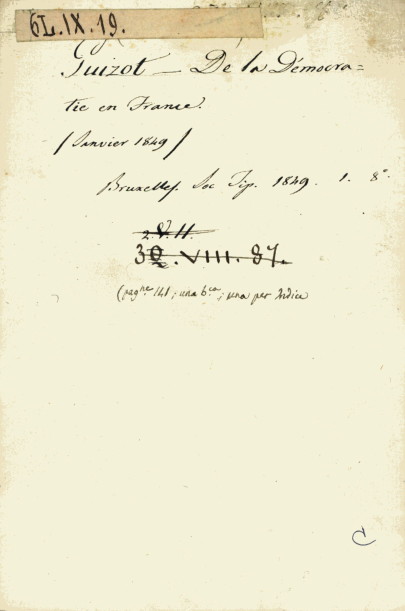 6L.IX.19.
Guizot — De la Démocra=
tie en France.
/ Janvier 1849 /
Bruxelles. Soc Tip. 1849. 1. 8°.
38.VIII.37.
(pagne 141; una bca; una per Indice
C